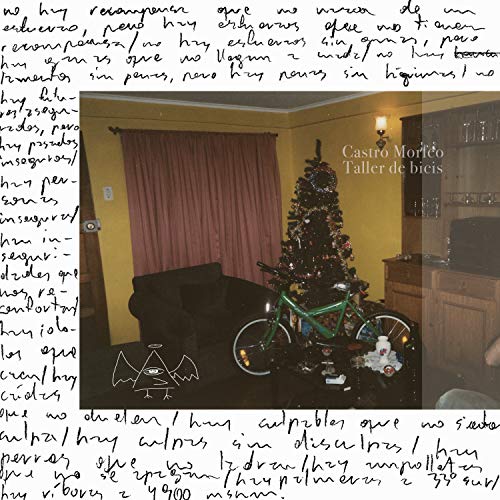 no hay recompensa que no nazca de un
esfuerzo, pero hay esfuerzos que no tienen
recompensa/no hay esfuerzos sin ganas, pero
hay ganas que no llegan a nada/no hay
lamentos sin penas, pero hay penas sin lágrimas/no
hay futu-
ros asegu-
rados, pero
hay pasados
inseguros/
hay per-
sonas
inseguras/
hay in-
seguri-
dades que
nos re-
confortan/
hay ído-
los que
caen/hay
caídas
Castro Morfeo
Taller de bicis
que no duelen/hay culpables que no sienten
culpa/hay culpas sin disculpas/hay
perros que no ladran/hay ampolletas
que no se apagan/hay palmeras a 33° sur/
hay víboras a 4900 msnm.